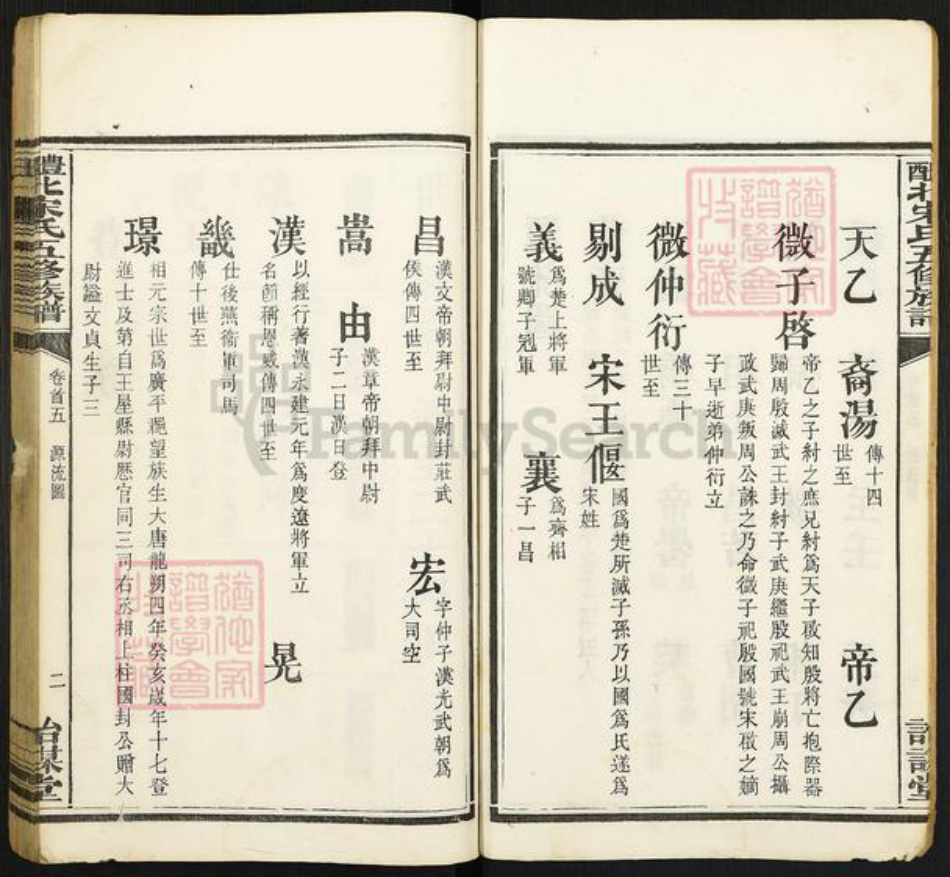 天乙 裔湯 傳十四
世至
帝乙
微子啓 帝乙之子紂之庶兄紂爲天子啟知殷將亡抱際器
歸周殷滅武王封紂子武庚繼殷祀武王崩周公攝
政武庚叛周公誅之乃命微子祀殷國號宋微之嫡
子早逝弟仲衍立
微仲衍 傳三十
世至
剔成 宋王偃 國爲楚所滅子孫乃以國爲氏遂爲
宋姓
義 爲楚上將軍
號卿子冠軍
襄 爲齊相
子一昌
昌 漢文帝朝拜尉中尉封莊武
侯傳四世至
宏 字仲子漢光武朝爲
大司空
嵩 由 漢章帝朝拜中尉
子二日漢日登
漢 以經行著漢永建元年爲度遼將軍立
名節稱恩威傳四世至
晃
畿 仕後燕衞軍司馬
傳十世至
璟 相元宗世爲廣平望族生大唐龍朔四年癸亥歲年十七登
進士及第自王屋縣尉歷官同三司右丞相上柱國封公贈大
尉謚文貞生子三
醴北宋氏五修族譜
卷首五 源流圖
二
詒謀堂
FamilySearch